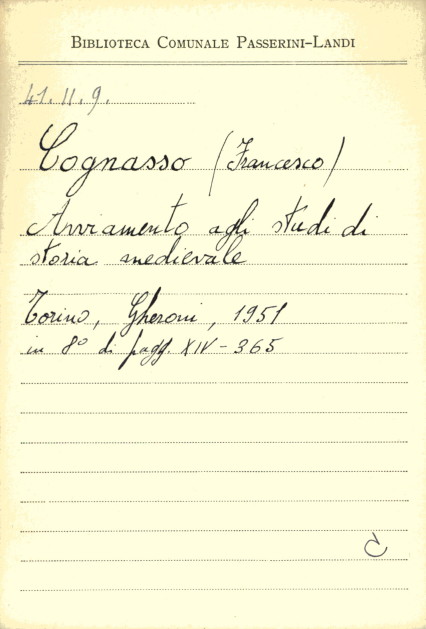 Biblioteca Comunale Passerini-Landi
41.II.9.
Cognasso (Francesco)
Avviamento agli studi di
storia medievale
Torino, Gheroni, 1951
in 8° di pagg. XIV-365